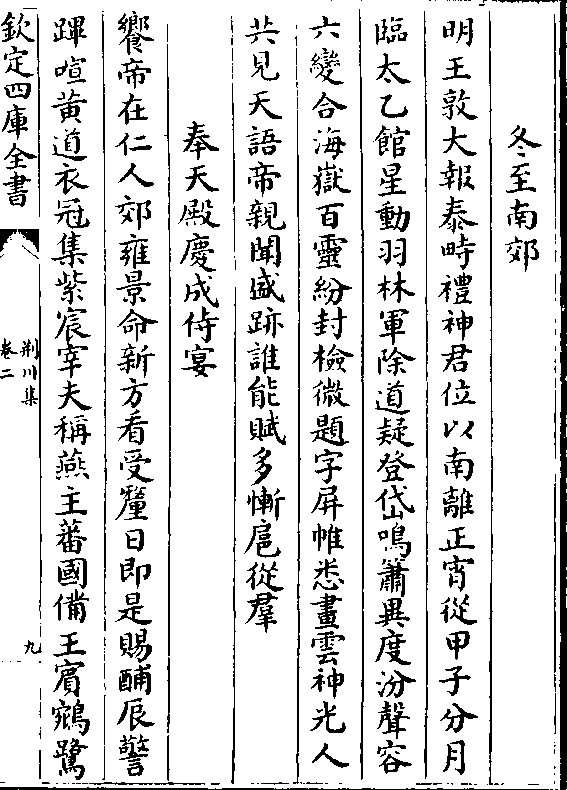 冬至南郊
明王敦大報泰畤禮神君位以南離正宵從甲子分月
臨太乙館星動羽林軍除道疑登岱鳴簫異度汾聲容
六變合海嶽百靈紛封檢微題字屏帷悉畫雲神光人
共見天語帝親聞盛跡誰能賦多慚扈從羣
奉天殿慶成侍宴
饗帝在仁人郊雍景命新方看受釐日即是賜酺辰警
蹕喧黃道衣冠集紫宸宰夫稱燕主蕃國備王賓鵷鷺
欽定四庫全書
荆川集
卷二
九